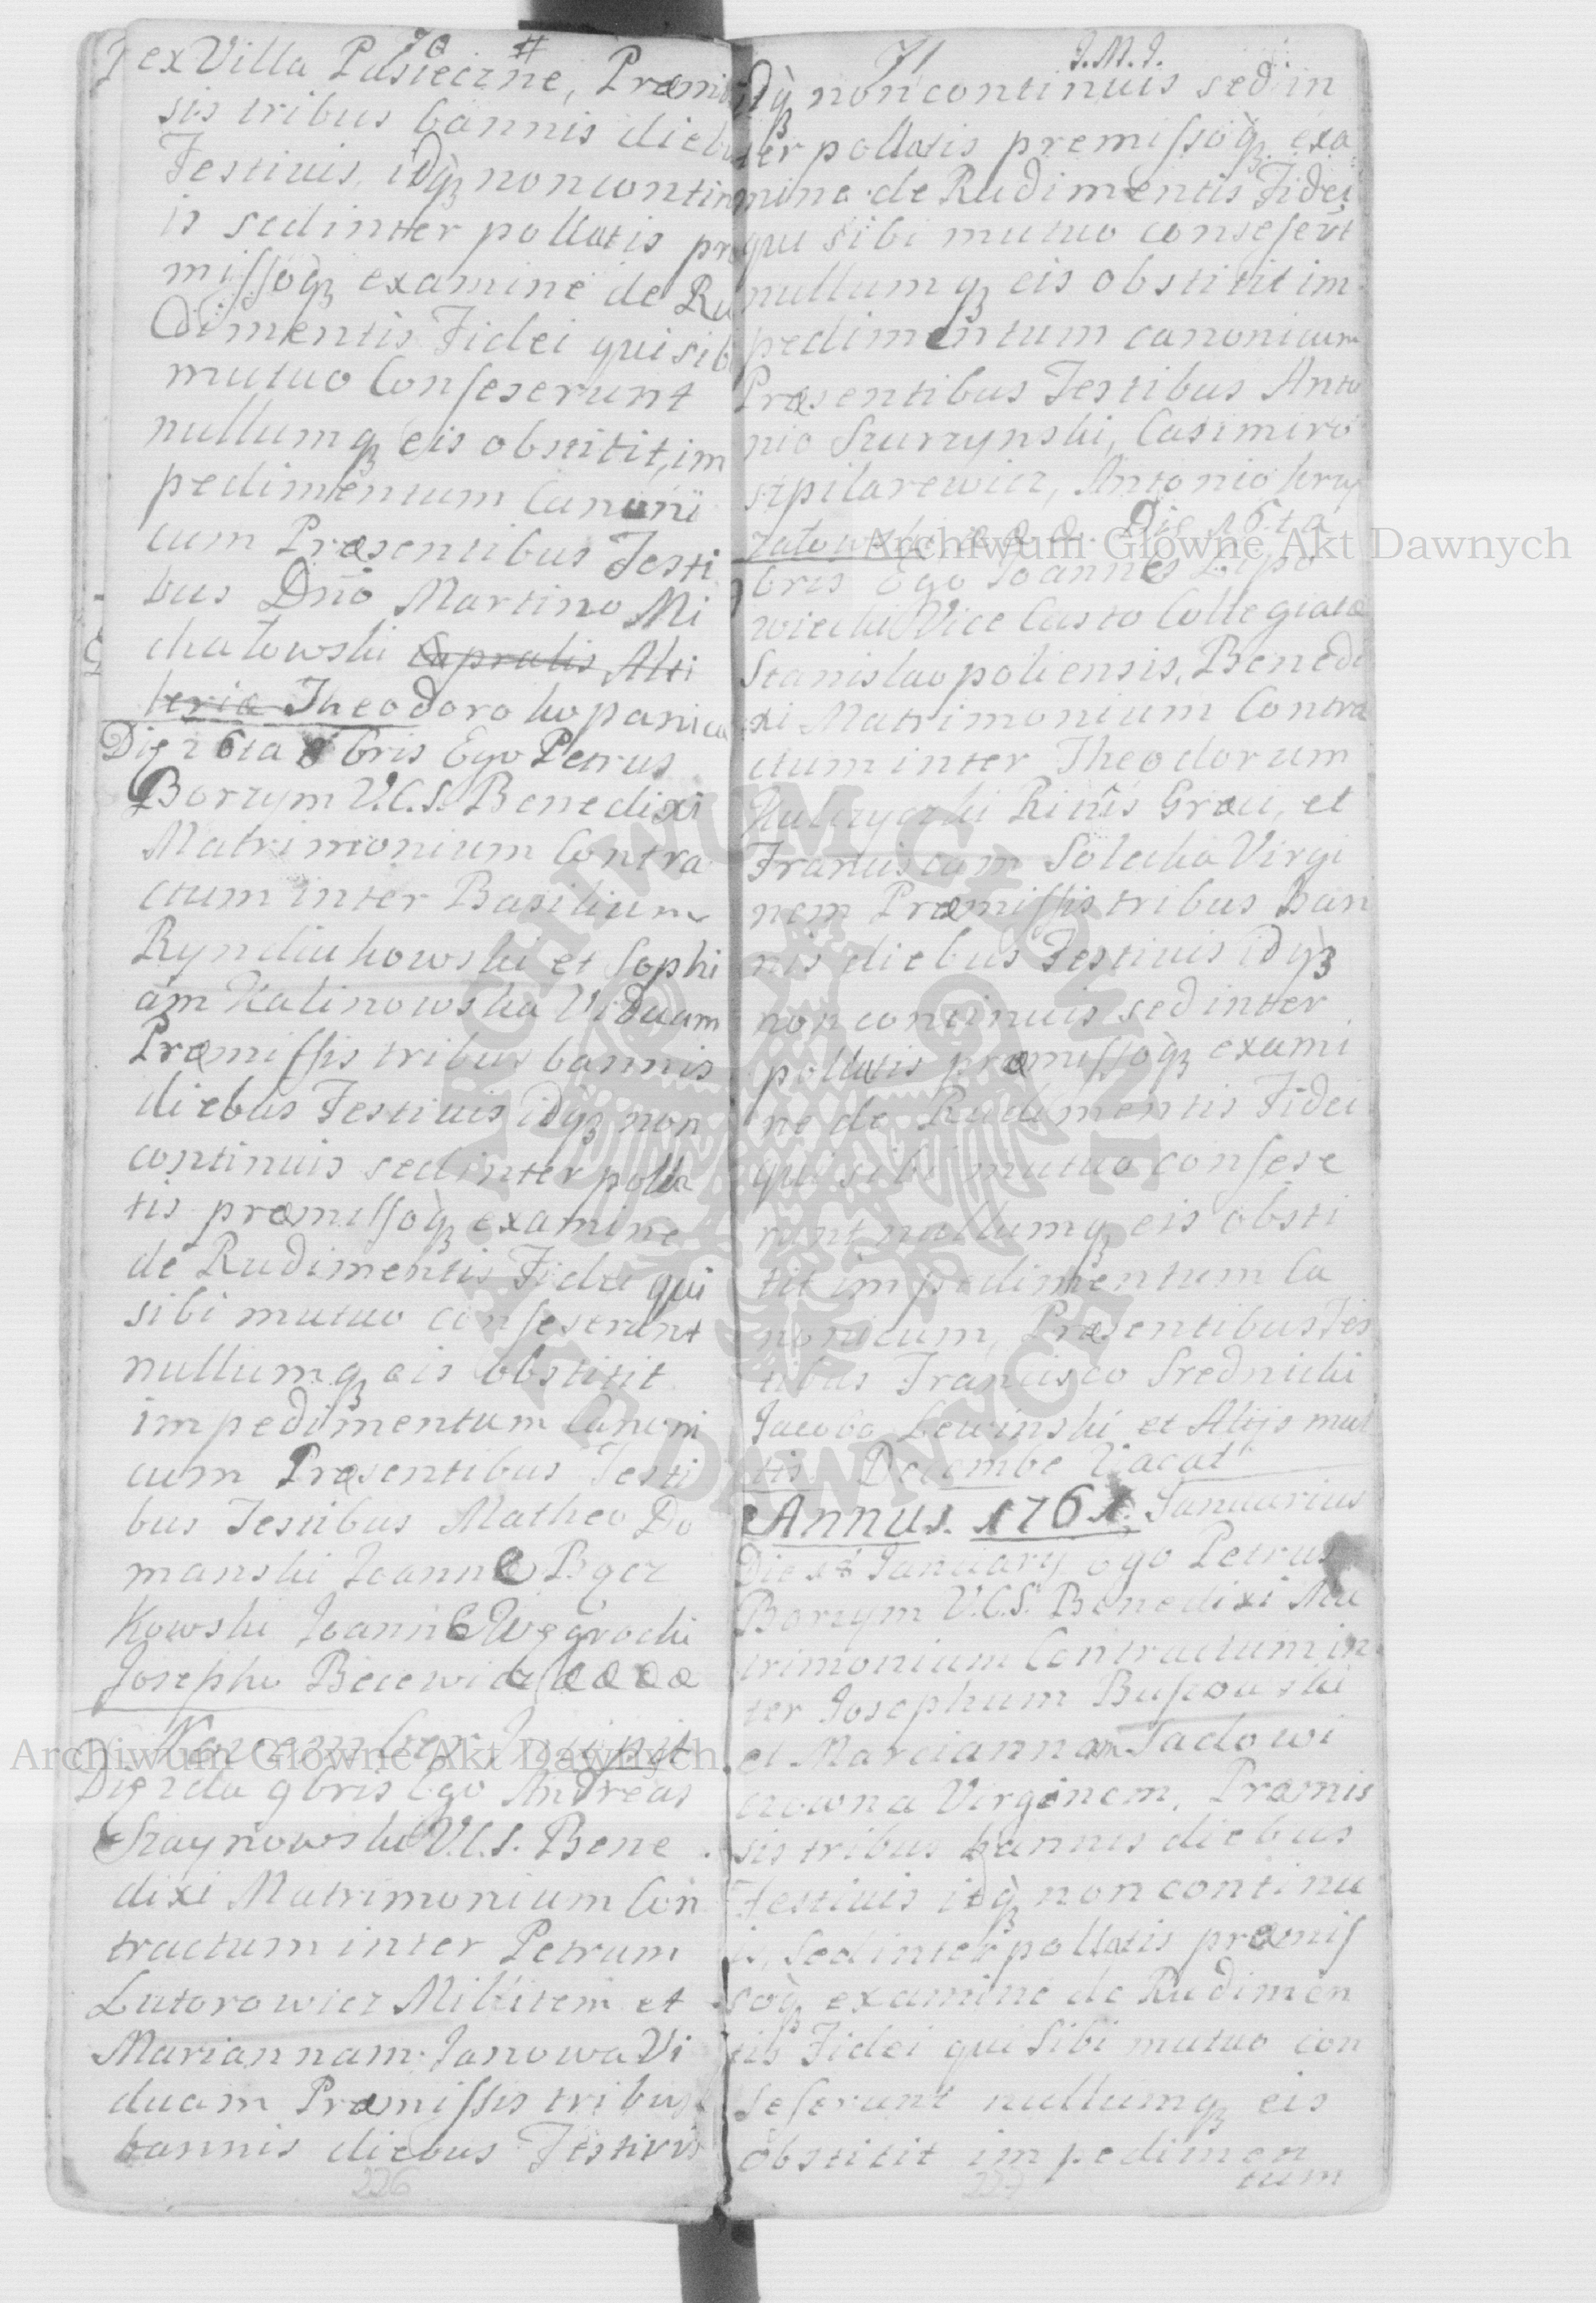 70 #
ex Villa Pasieczne, Præmis
sis tribus bannis diebus
Festiuis, idq3 non continu
is sed inter pollatis præ
missoq3 examine de Ru
dimentis Fidei qui sibi
mutuo Conseserunt
nullumq3 eis obstitit, im
pedimentum Canoni
cum Præsentibus Testi
bus Dno Martino Mi
chałowski Capralis Alti
leria Theodoro kopanica
Die 26ta 8bris Ego Petrus
Borzym V.C.S. Benedixi
Matrimonium Contra
ctum inter Basilium
Ryndiukowski et Sophi
am Kalinowska Viduam
Præmissis tribus bannis
diebus Festiuis idq3 non
continuis sed inter polla
tis præmissoq3 examine
de Rudimentis Fidei qui
sibi mutuo conseserunt
nullumq3 eis obstitit
impedimentum Canoni
cum Præsentibus Testi
bus Testibus Matheo Do
manski Joanne Bącz
kowski Joanne Węgrocki
Josepho Becewicz
November Incipit
Die 2da 9bris Ego Andreas
Szaynowski V.C.S. Bene
dixi Matrimonium Con
tractum inter Petrum
Lutorowicz Militem et
Mariannam Janowa Vi
duam Præmissis tribus
bannis diebus Festivis
226
71 J.M.J.
idq3 non continuis sed in
ter pollatis premissoq3 exa
mine de Rudimentis Fidei
qui sibi mutuo conseserut
nullumq3 eis obstitit im
pedimentum canonicum
Præsentibus Testibus Anto
nio Szurzynski, Casimiro
szpilarewicz, Antonio krzy
Die 16ta
bris Ego Joannes Lipo
wiecki Vice Custo Collegiatæ
Stanislaopoliensis, Benedi
xi Matrimonium Contra
ctum inter Theodorum
Kulczycki Ritus Græci, et
Franciscam Solecka Virgi
nem Præmissis tribus Ban
nis diebus Festiuis idq3
non continuis sed inter
pollatis præmissoq3 exami
ne de Rudimentis Fidei
qui sibi mutuo consese
runt nullumq3 eis obsti
tit impedimentum Ca
nonicum, Præsentibus Tes
tibus Francisco Srednicki
Jacobo Lewinski et Alijs mul
tis. Decembe Vacat
Annus. 1761. Januarius
Januarij Ego Petrus
Borzym V.C.S. Benedixi Ma
trimonium Contractum in
ter Josephum
et Mariannam Sadowi
czowna Virginem, Præmis
sis tribus bannis diebus
Festiuis itq3 non continu
is, sed inter pollatis præmis
soq3 examine de Rudimen
tis Fidei qui Sibi mutuo con
seserunt nullumq3 eis
obstitit impedimen
tum
227
Archiwum Główne Akt Dawnych
Archiwum Główne Akt Dawnych
ARCHIWUM GŁÓWNE AKT DAWNYCH